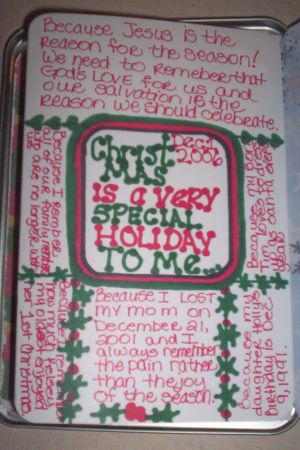 Because Jesus is the
Reason for the season!
We need to Remeber that
God's LOVE for us and
our salvation is the
Reason we should celebrate.
Christ
MAS
Dec 1,
2006
IS A VERY
SPECIAL
HOLIDAY
TO ME...
Because I Lost
my mom on
December 21,
2001 and I
always remember
the pain rather
than the joy
of the season.
Because my
daughter Holly's
Birthday is Dec.
9, 1991.
Because my Dad
Loves to dress
as santa every
year!
Because I remember
all of our family
who are no longer with
us.
Because I remember
how much Kelsey
my oldest enjoyed
her 1st christmas